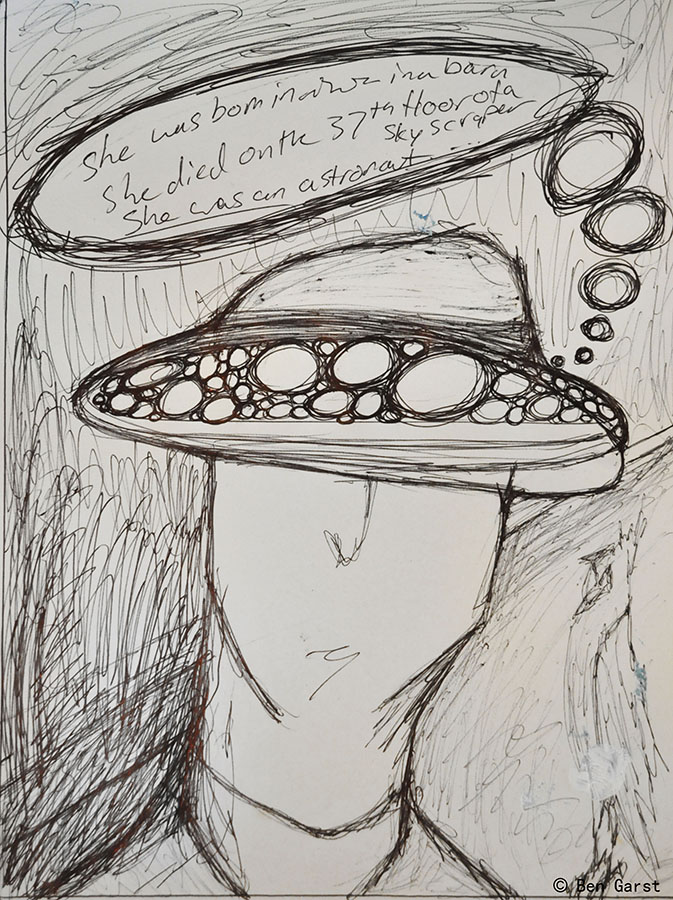 She was born in a barn
She died on the 37th floor of a
sky scraper
She was an astronaut....
© Ben Garst